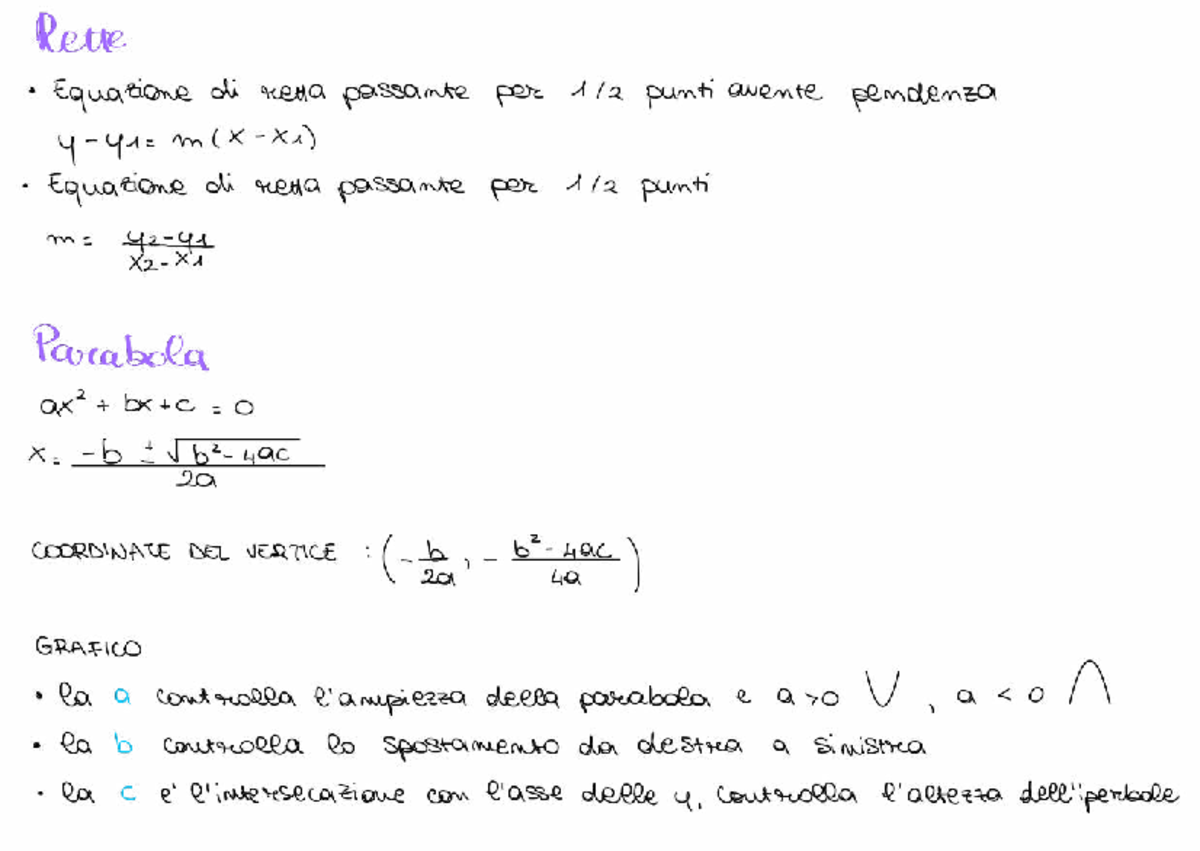 Rette
• Equazione di retta passante per 1/2 punti avente pendenza
y - y1 = m (x - x1)
• Equazione di retta passante per 1/2 punti
m = y2 - y1 / x2 - x1
Parabola
ax² + bx + c = 0
x = -b ± √b² - 4ac / 2a
COORDINATE DEL VERTICE : (- b/2a , - b² - 4ac / 4a)
GRAFICO
• la a controlla l'ampiezza della parabola e a>0 , a < 0
• la b controlla lo spostamento da destra a sinistra
• la c e' l'intersecazione con l'asse delle y, controlla l'altezza dell'iperbole